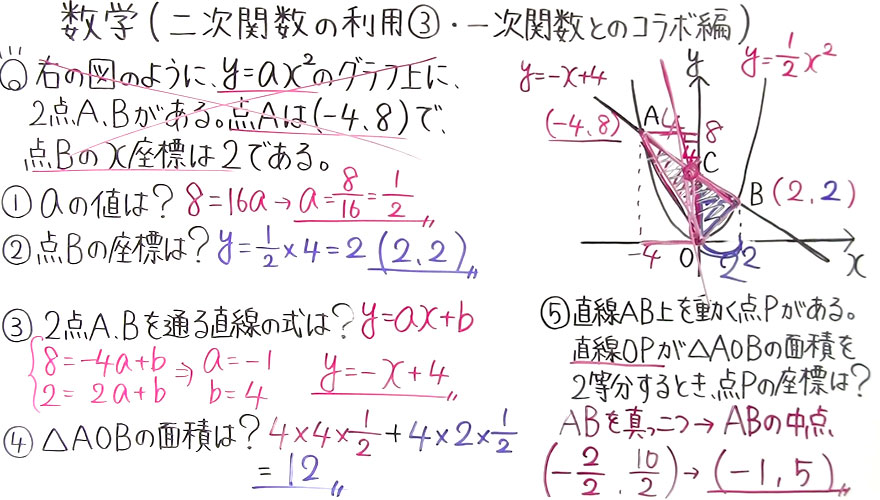 数学(二次関数の利用③・一次関数とのコラボ編)
右の図のように、y=ax²のグラフ上に、
2点A、Bがある。点Aは(-4、8)で、
点Bのx座標は2である。
① aの値は? 8=16a→a=8/16=1/2
② 点Bの座標は? y=1/2×4=2 (2、2)
③ 2点A、Bを通る直線の式は? y=ax+b
8=-4a+b
2=2a+b
⇒ a=-1
b=4
y=-x+4
④ △AOBの面積は? 4×4×1/2+4×2×1/2
=12
y=-x+4
y
y=1/2x²
(-4、8)
A
4
8
4
C
B(2、2)
-4
O
2
2
x
⑤ 直線AB上を動く点Pがある。
直線OPが△AOBの面積を
2等分するとき、点Pの座標は?
ABを真っ二つ→ABの中点
(-2/2、10/2)→(-1、5)